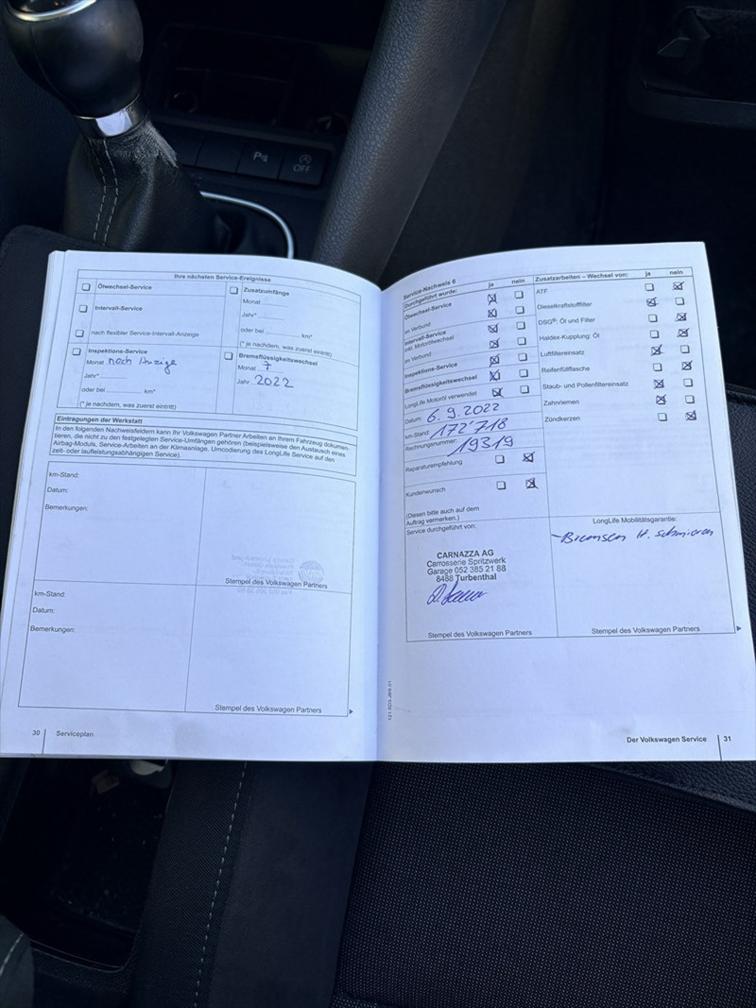 P
OFF
Ihre nächsten Service-Ereignisse
Ölwechsel-Service
Intervall-Service
nach flexibler Service-Intervall-Anzeige
Inspektions-Service
Monat nach Anzeige
Jahr*
oder bei km*
(* je nachdem, was zuerst eintritt)
Zusatzumfänge
Monat
Jahr*
oder bei km*
(* je nachdem, was zuerst eintritt)
Bremsflüssigkeitswechsel
Monat 7
Jahr 2022
Eintragungen der Werkstatt
In den folgenden Nachweisfeldern kann Ihr Volkswagen Partner Arbeiten an Ihrem Fahrzeug dokumen-
tieren, die nicht zu den festgelegten Service-Umfängen gehören (beispielsweise den Austausch eines
Airbag-Moduls, Service-Arbeiten an der Klimaanlage, Umcodierung des LongLife Service auf den
zeit- oder laufleistungsabhängigen Service).
km-Stand:
Datum:
Bemerkungen:
Stempel des Volkswagen Partners
km-Stand:
Datum:
Bemerkungen:
Stempel des Volkswagen Partners
30 Serviceplan
Service-Nachweis 6
Durchgeführt wurde: ja nein
Ölwechsel-Service
im Verbund
Intervall-Service
inkl. Motorölwechsel
im Verbund
Inspektions-Service
Bremsflüssigkeitswechsel
LongLife Motoröl verwendet
Datum: 6.9.2022
km-Stand: 172'718
Rechnungsnummer: 19319
Reparaturempfehlung
Kundenwunsch
(Diesen bitte auch auf dem
Auftrag vermerken.)
Zusatzarbeiten – Wechsel von: ja nein
ATF
Dieselkraftstofffilter
DSG®: Öl und Filter
Haldex-Kupplung: Öl
Luftfiltereinsatz
Reifenfüllflasche
Staub- und Pollenfiltereinsatz
Zahnriemen
Zündkerzen
Service durchgeführt von:
CARNAZZA AG
Carrosserie Spritzwerk
Garage 052 385 21 88
8488 Turbenthal
Stempel des Volkswagen Partners
LongLife Mobilitätsgarantie:
- Bremsen H. schmieren
Stempel des Volkswagen Partners
Der Volkswagen Service 31